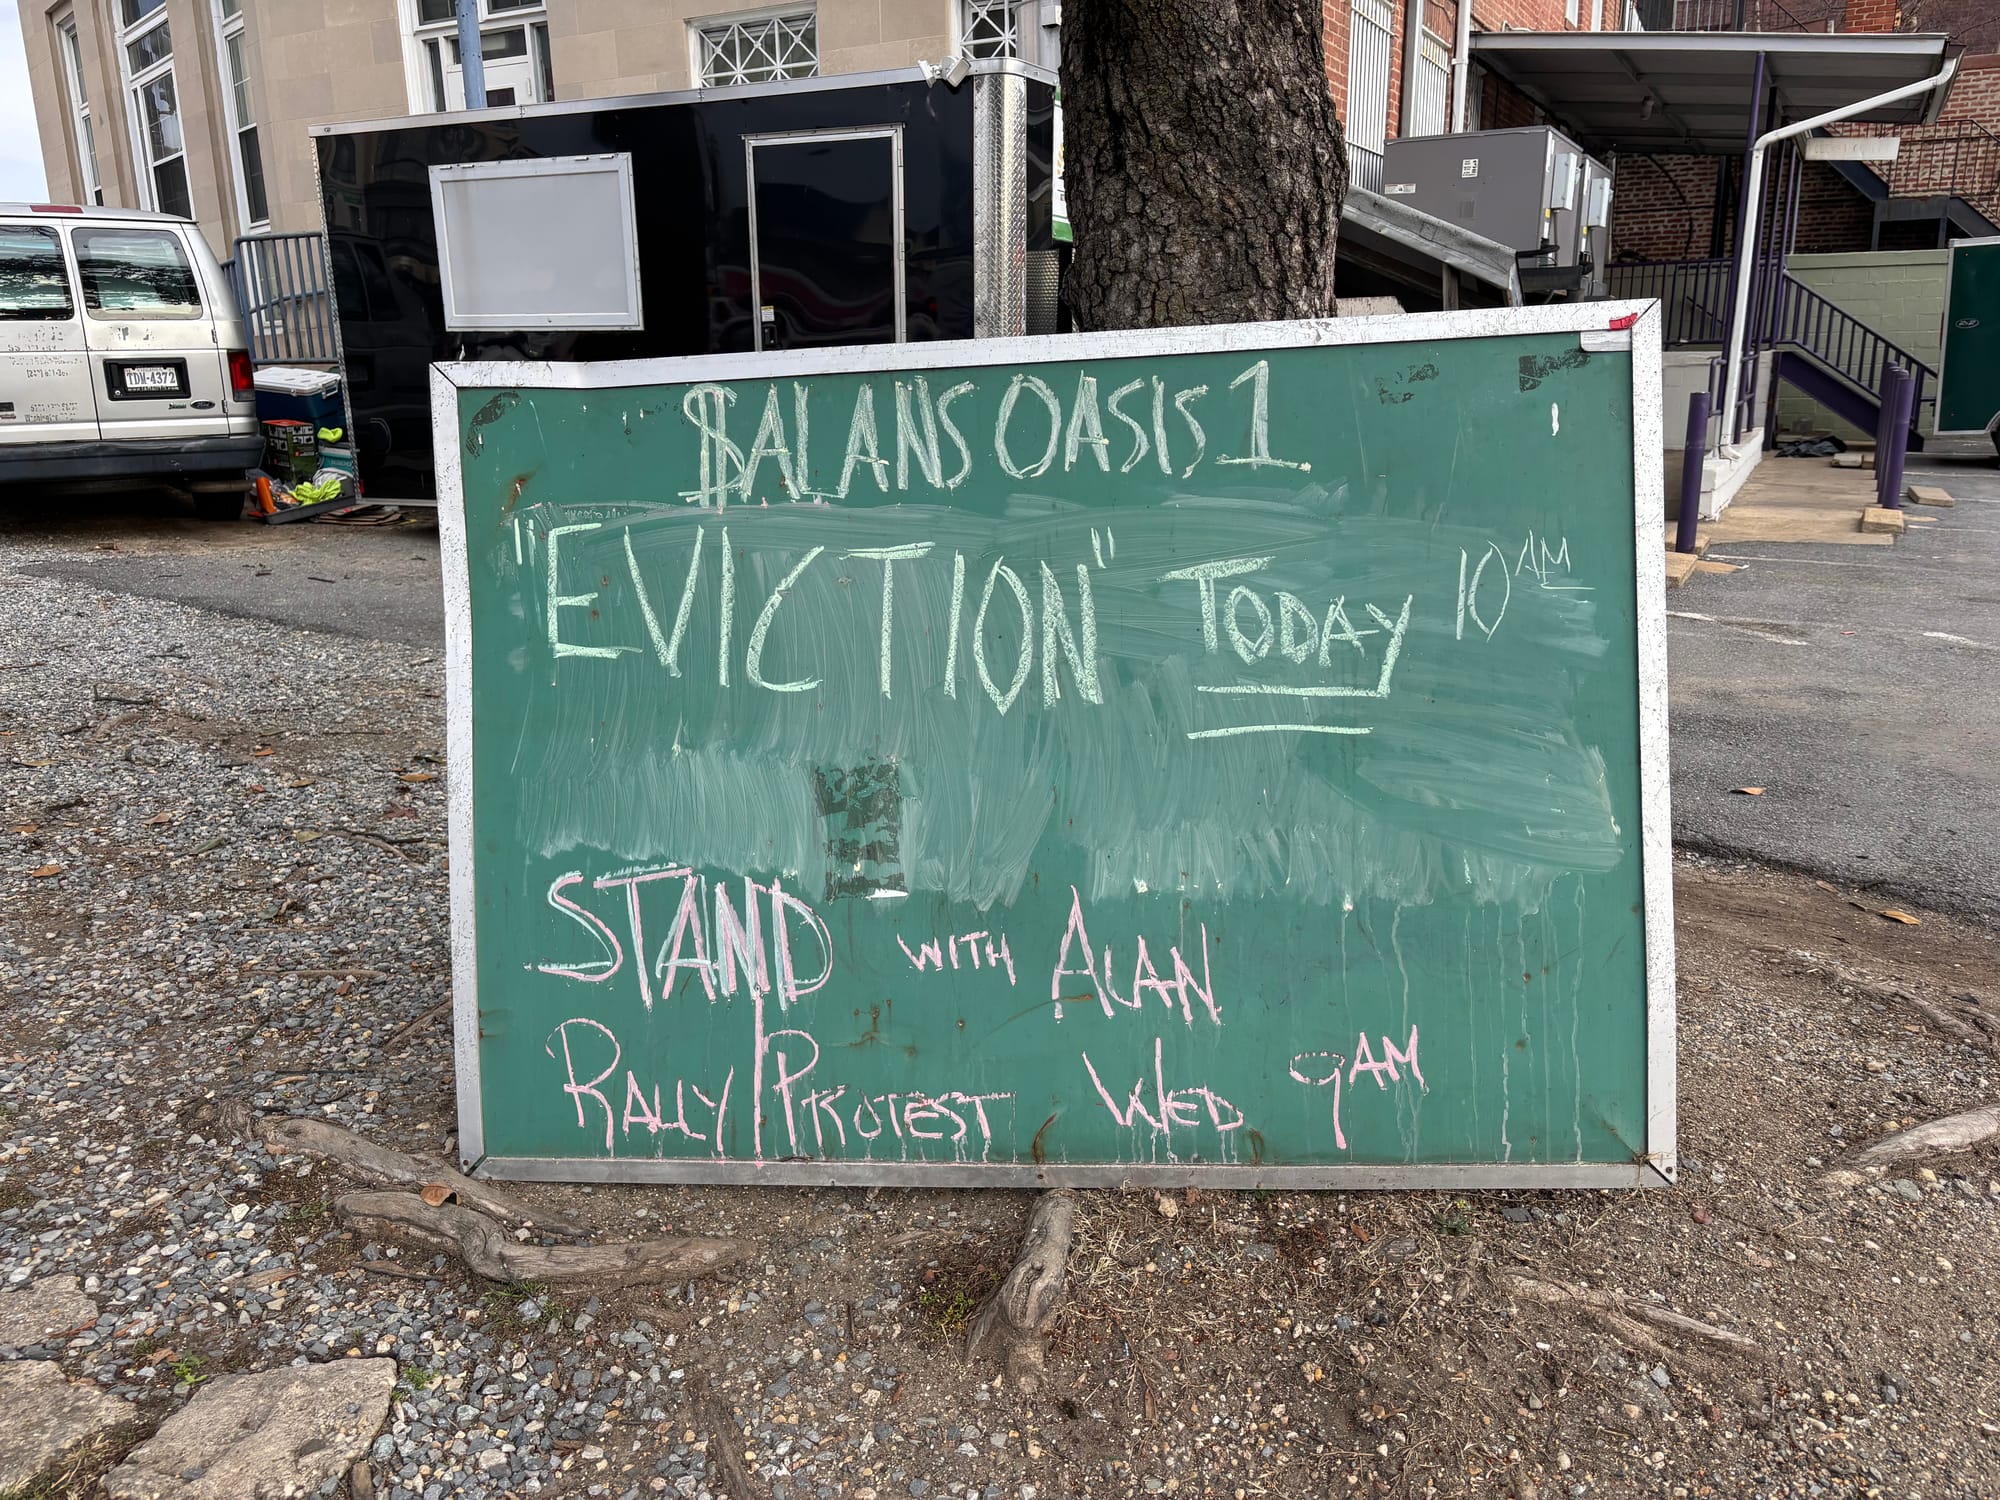 $ALANS OASIS 1
"EVICTION" TODAY 10 AM
STAND WITH ALAN
RALLY/PROTEST WED 9AM
TDM-4372